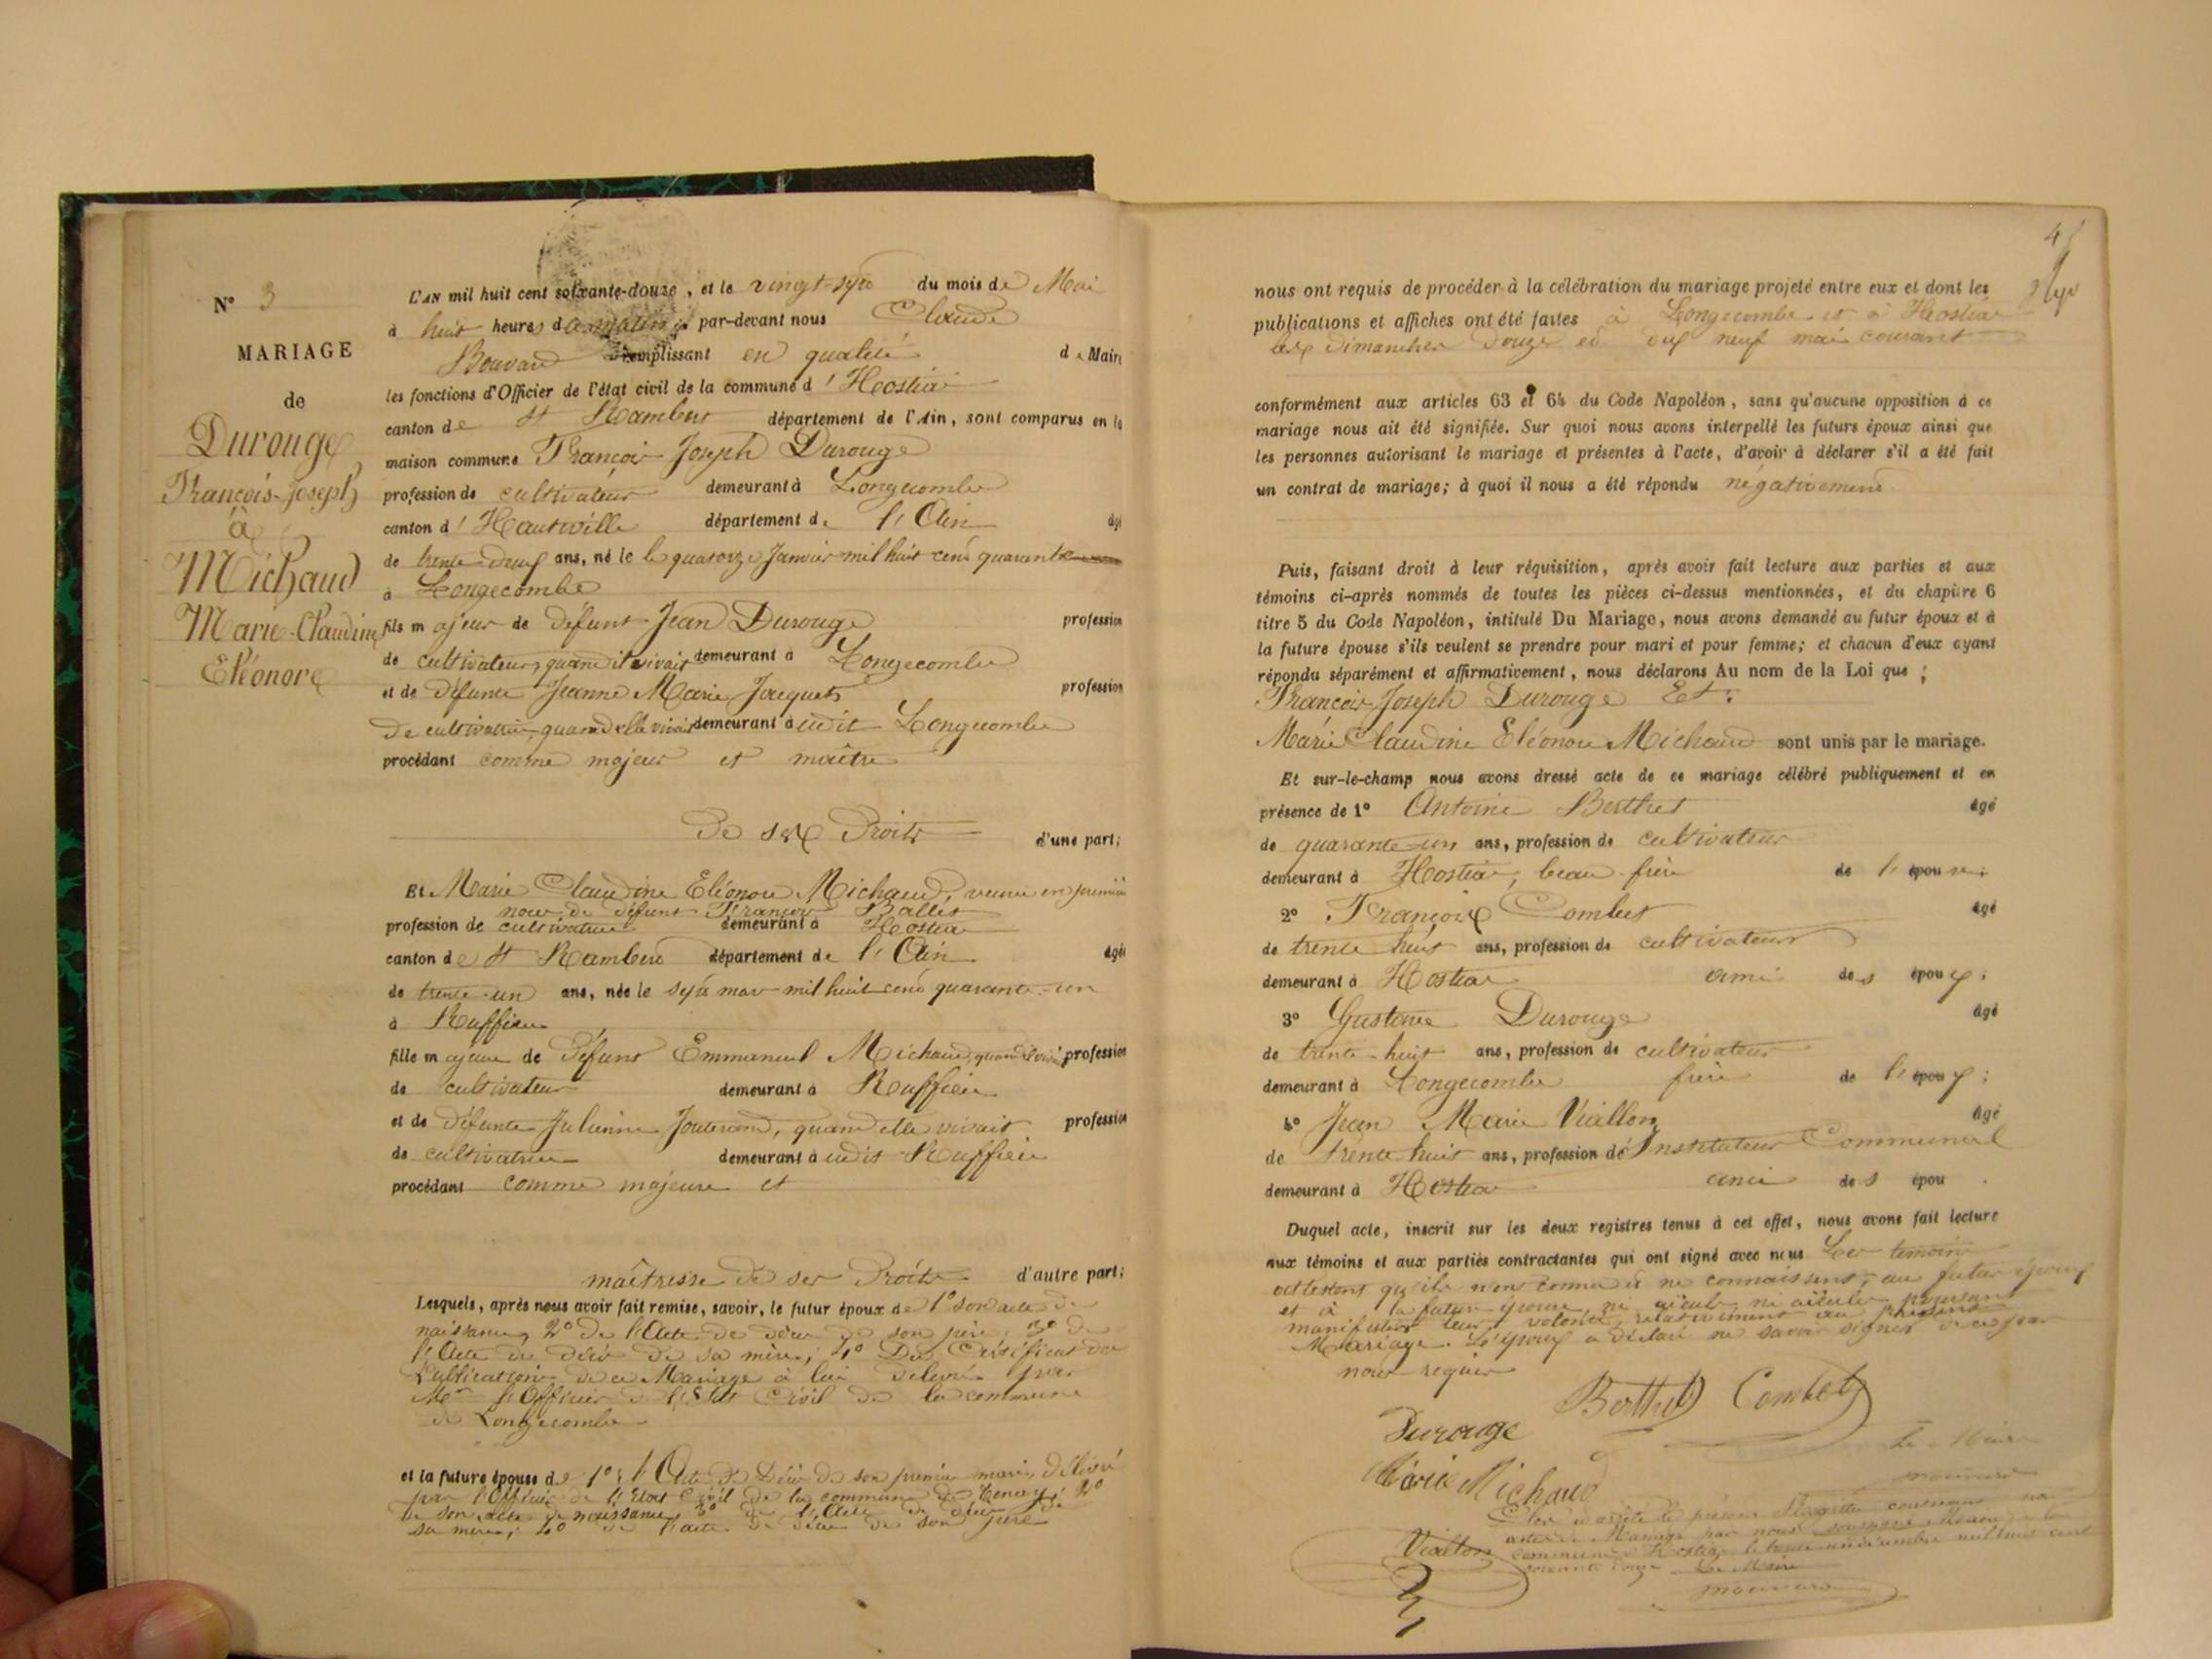 N° 3
MARIAGE
de
Durouge
François-Joseph
à
Michaud
Marie-Claudine
Eléonore
L'AN mil huit cent soixante-douze, et le vingt-sept du mois de Mai
à huit heures du matin par-devant nous Claude
Bouvard remplissant en qualité de Maire
les fonctions d'Officier de l'état civil de la commune d'Hostia
canton de St Rambert département de l'Ain, sont comparus en la
maison commune François Joseph Durouge
profession de cultivateur demeurant à Longecombe
canton d'Hauteville département de l'Ain âgé
de trente-deux ans, né le le quatorze Janvier mil huit cent quarante
à Longecombe
fils majeur de défunt Jean Durouge profession
de cultivateur, quand il vivait demeurant à Longecombe
et de défunte Jeanne Marie Jacquet profession
de cultivatrice, quand elle vivait demeurant à udit Longecombe
procédant comme majeur et maître
de ses Droits d'une part;
Et Marie Claudine Eléonore Michaud, veuve en première
noce de défunt François Ballet
profession de cultivatrice demeurant à Hostia
canton de St Rambert département de l'Ain âgée
de trente-un ans, née le sept mars mil huit cent quarante-un
à Ruffieu
fille majeure de Défunt Emmanuel Michaud, quand il vivait profession
de cultivateur demeurant à Ruffieu
et de défunte Julienne Jouterand, quand elle vivait profession
de cultivatrice demeurant à udit Ruffieu
procédant comme majeure et
maîtresse de ses Droits d'autre part;
Lesquels, après nous avoir fait remise, savoir, le futur époux de 1° son acte de
naissance, 2° de l'Acte de décès de son père; 3° de
l'Acte de décès de sa mère; 4° Du Certificat de
Publication de ce Mariage à lui délivré par
Mr l'Officier de l'Etat Civil de la commune
de Longecombe
et la future épouse de 1° l'Acte de Décès de son premier mari, délivré
par l'Officier de l'Etat Civil de la commune de Tenay; 2°
de son acte de naissance, 3° de l'Acte de décès de
sa mère; 4° de l'acte de décès de son père
4
nous ont requis de procéder à la célébration du mariage projeté entre eux et dont les
publications et affiches ont été faites à Longecombe et à Hostia
les dimanches douze et dix neuf mai courant
conformément aux articles 63 et 64 du Code Napoléon, sans qu'aucune opposition à ce
mariage nous ait été signifiée. Sur quoi nous avons interpellé les futurs époux ainsi que
les personnes autorisant le mariage et présentes à l'acte, d'avoir à déclarer s'il a été fait
un contrat de mariage; à quoi il nous a été répondu négativement
Puis, faisant droit à leur réquisition, après avoir fait lecture aux parties et aux
témoins ci-après nommés de toutes les pièces ci-dessus mentionnées, et du chapitre 6
titre 5 du Code Napoléon, intitulé Du Mariage, nous avons demandé au futur époux et à
la future épouse s'ils veulent se prendre pour mari et pour femme; et chacun d'eux ayant
répondu séparément et affirmativement, nous déclarons Au nom de la Loi que;
François Joseph Durouge Et
Marie Claudine Eléonore Michaud sont unis par le mariage.
Et sur-le-champ nous avons dressé acte de ce mariage célébré publiquement et en
présence de 1° Antoine Berthet âgé
de quarante-un ans, profession de cultivateur
demeurant à Hostia, beau-frère de l'épouse;
2° François Combet âgé
de trente huit ans, profession de cultivateur
demeurant à Hostia ami des époux;
3° Gustave Durouge âgé
de trente-huit ans, profession de cultivateur
demeurant à Longecombe frère de l'époux;
4° Jean Marie Viallon âgé
de trente huit ans, profession de Instituteur Communal
demeurant à Hostia ami des époux.
Duquel acte, inscrit sur les deux registres tenus à cet effet, nous avons fait lecture
aux témoins et aux parties contractantes qui ont signé avec nous Les témoins
attestent qu'ils n'ont connu et ne connaissent, au futur époux
et à la future épouse, ni aïeuls ni aïeules pouvant
manifester leur volonté, relativement au présent
Mariage. L'époux a déclaré ne savoir signer de ce jour
nous requis
Berthet Combet
Durouge
Marie Michaud
Le Maire
Clos et arrêté le présent Registre contenant
actes de Mariage par nous soussigné Maire de la
Viallon commune d'Hostia, le trente un décembre mil huit cent
soixante douze Le Maire